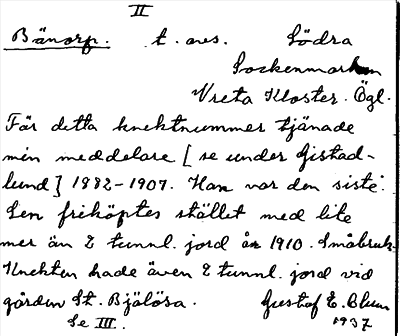 II
Bänorp. t. avs. Södra
Sockenmarken
Vreta Kloster. Ögl.
För detta knektnummer tjänade
min meddelare [se under Gistad-
lund] 1882-1907. Han var den siste.
Sen friköptes stället med lite
mer än 2 tunnl. jord år 1910. Småbruk.
Knekten hade även 2 tunnl. jord vid
gården St. Bjälösa. Gustof E. Blum
Se III. 1937